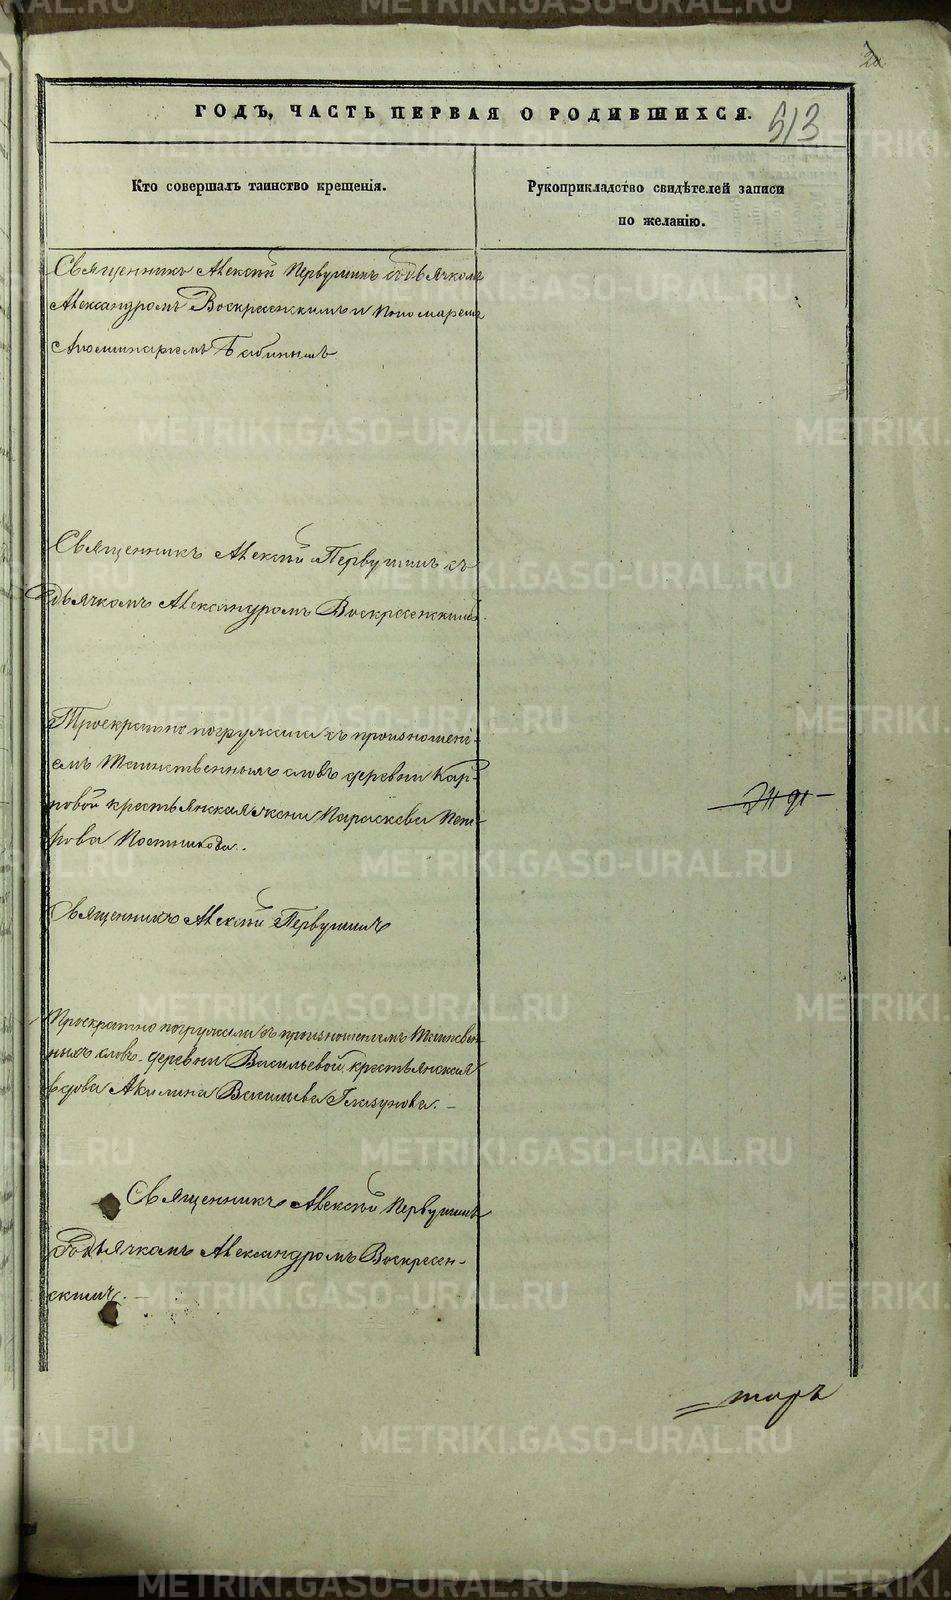 ГОДЪ, ЧАСТЬ ПЕРВАЯ О РОДИВШИХСЯ.
513
Кто совершалъ таинство крещенія.
Рукоприкладство свидѣтелей записи
по желанію.
Священникъ Алексѣй Первушинъ съ дьячкомъ
Александромъ Воскресенскимъ и пономаремъ
Аполлинаріемъ Бабинымъ
Священникъ Алексѣй Первушинъ съ
дьячкомъ Александромъ Воскресенскимъ
Троекратно погружала съ произношені-
емъ Таинственныхъ словъ деревни Кар-
повой крестьянская жена Параскева Пет-
рова Постникова.
Священникъ Алексѣй Первушинъ
Троекратно погружала съ произношеніемъ Таинствен-
ныхъ словъ деревни Васильевой крестьянская
вдова Акилина Васильева Глазунова. –
Священникъ Алексѣй Первушинъ
съ дьячкомъ Александромъ Воскресен-
скимъ. –
METRIKI.GASO-URAL.RU